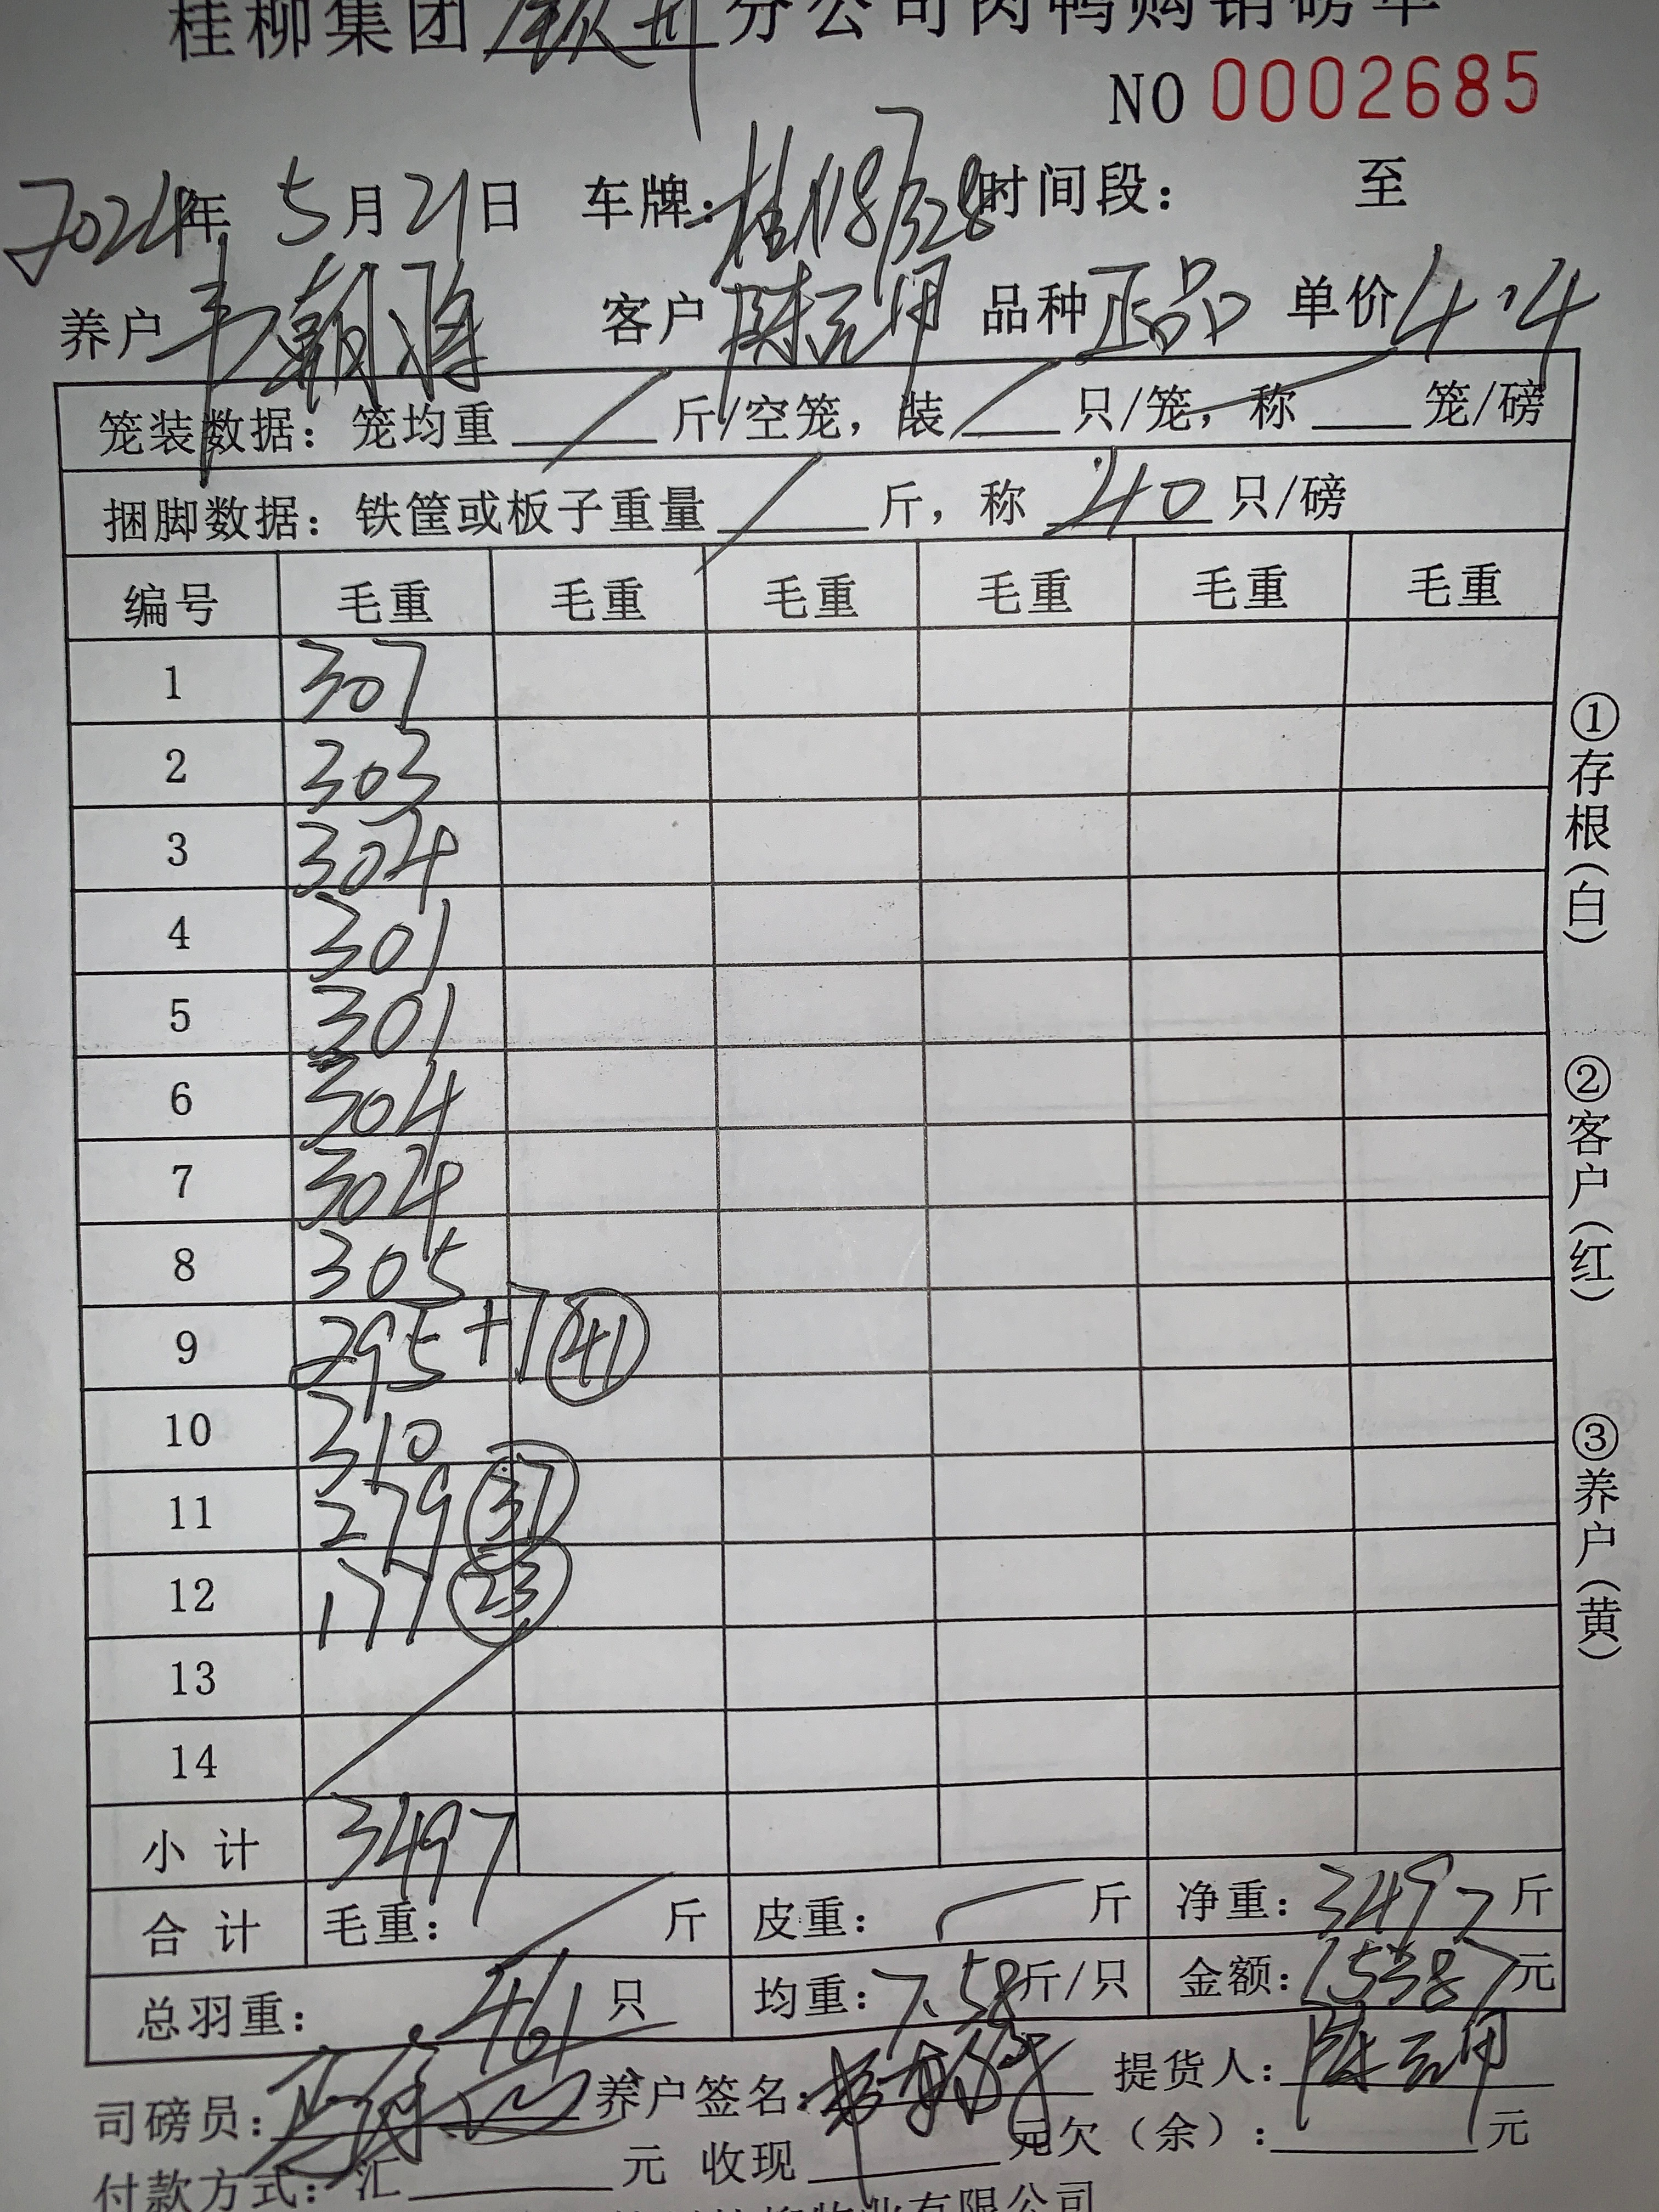 桂柳集团钦州分公司肉鸭购销磅单
NO 0002685
2024年 5月21日 车牌: 桂N8 时间段: 至
养户 韦朝 客户 陈元用 品种 正品 单价 4.4
笼装数据: 笼均重 斤/空笼, 装 只/笼, 称 笼/磅
捆脚数据: 铁筐或板子重量 斤, 称 40 只/磅
编号 毛重 毛重 毛重 毛重 毛重 毛重
1 307
2 303
3 304
4 301
5 301
6 304
7 304
8 305
9 295+7 41
10 310
11 279 37
12 177 23
13
14
小计 3497
合计 毛重: 斤 皮重: 斤 净重: 3497 斤
总羽重: 461 只 均重: 7.58 斤/只 金额: 15387 元
司磅员: 养户签名: 提货人: 陈元用
付款方式: 汇 元 收现 元欠(余): 元
物业有限公司
①存根(白)
②客户(红)
③养户(黄)